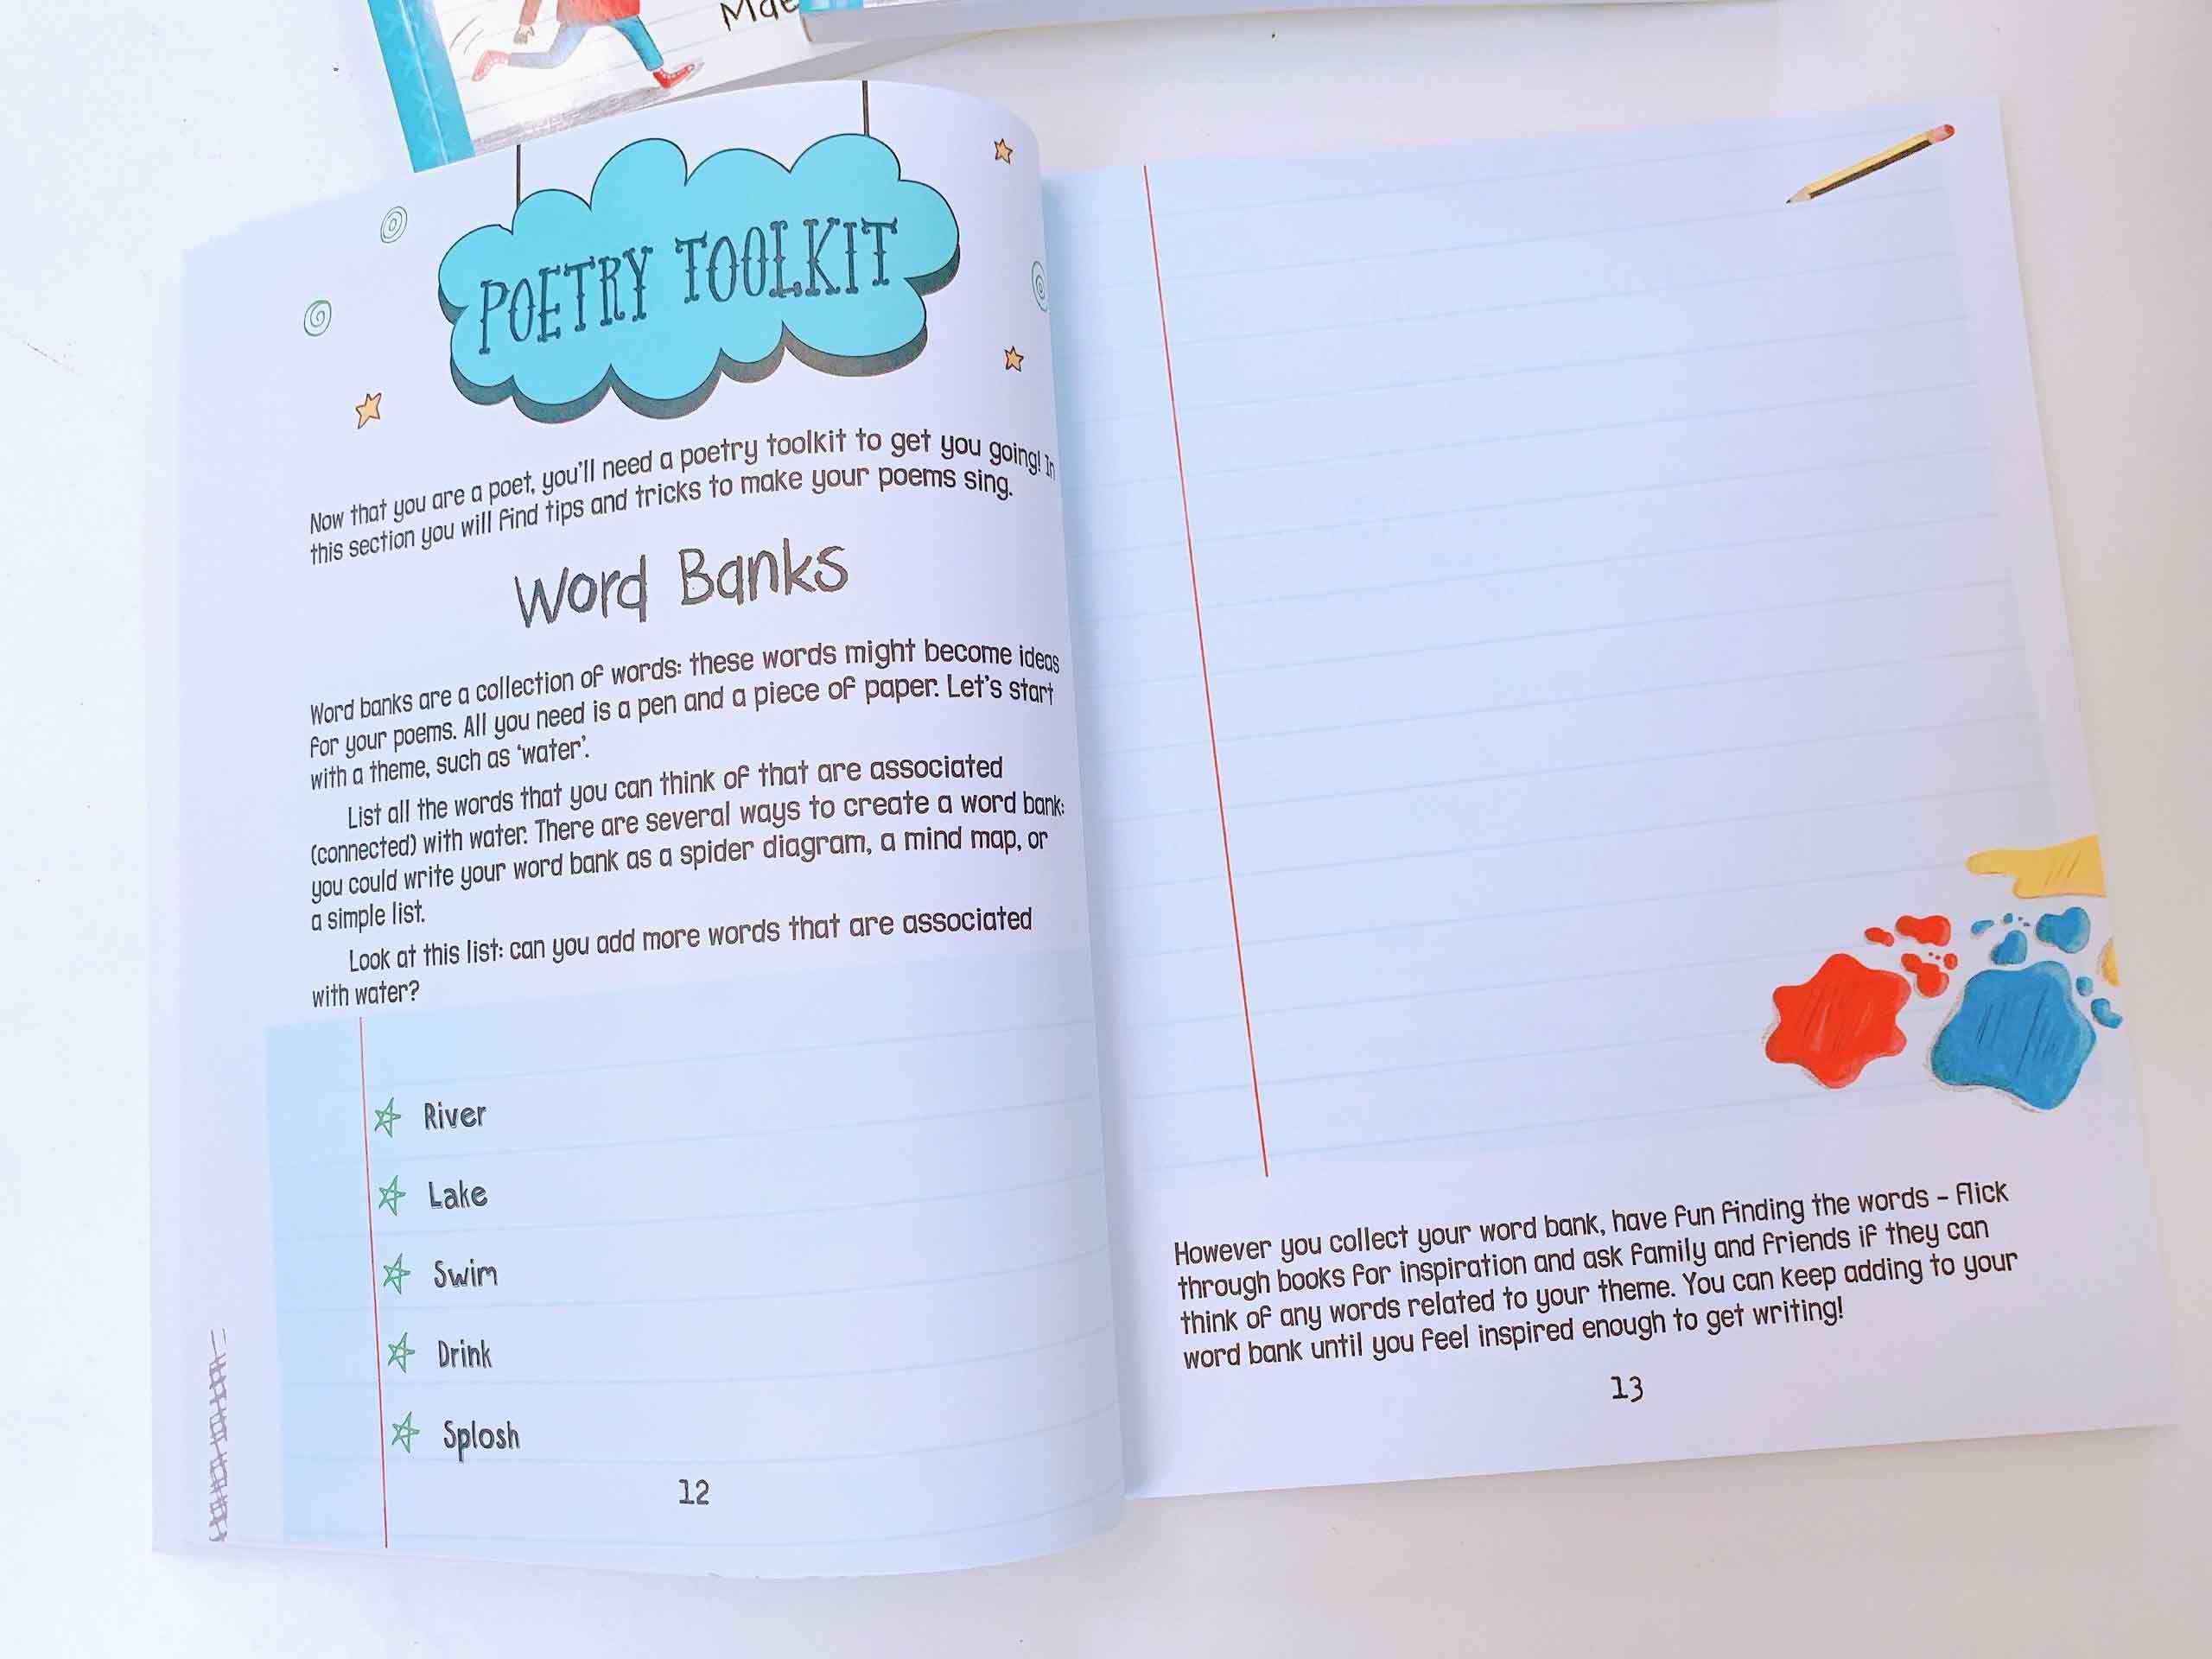 POETRY TOOLKIT
Now that you are a poet, you'll need a poetry toolkit to get you going! In
this section you will find tips and tricks to make your poems sing.
Word Banks
Word banks are a collection of words: these words might become ideas
for your poems. All you need is a pen and a piece of paper. Let's start
with a theme, such as 'water'.
List all the words that you can think of that are associated
(connected) with water. There are several ways to create a word bank:
you could write your word bank as a spider diagram, a mind map, or
a simple list.
Look at this list: can you add more words that are associated
with water?
River
Lake
Swim
Drink
Splosh
12
However you collect your word bank, have fun finding the words – flick
through books for inspiration and ask family and friends if they can
think of any words related to your theme. You can keep adding to your
word bank until you feel inspired enough to get writing!
13